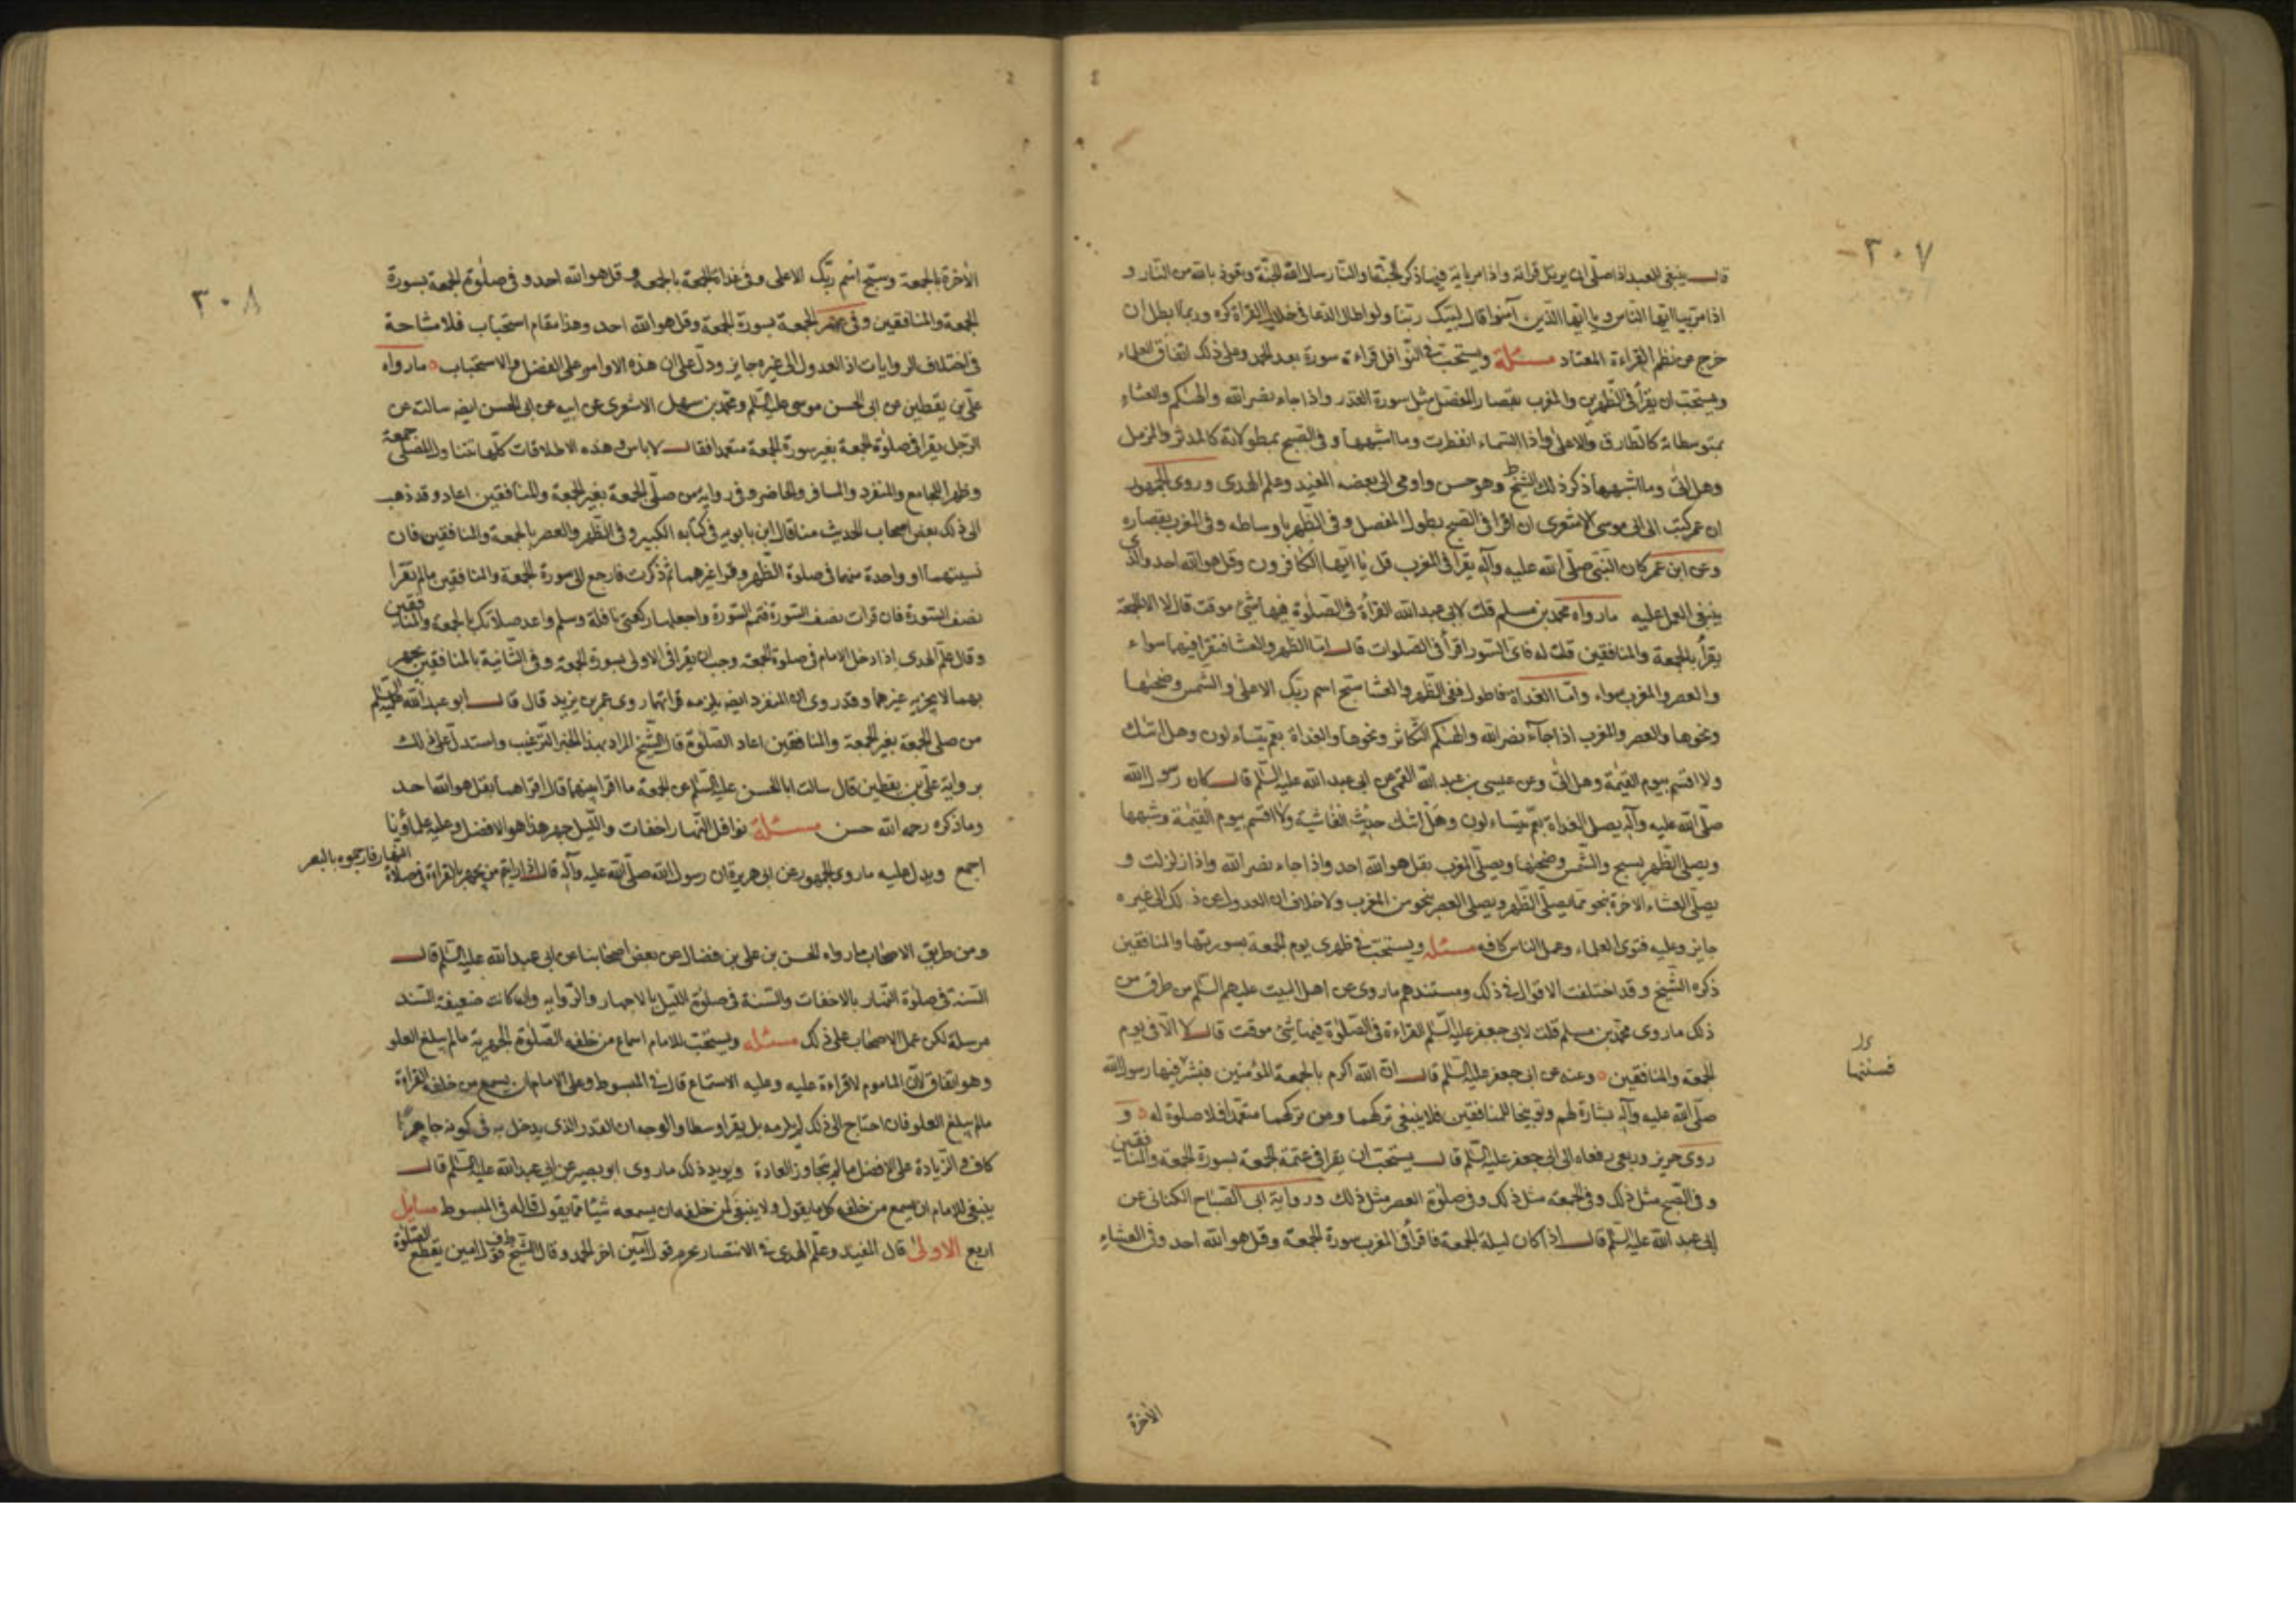 ٣٠٧
قال ينبغي للعبد اذا صلى ان يرتل قراءته واذا مر باية فيها ذكر الجنة والنار سال الله الجنة وتعوذ بالله من النار و
اذا مر بيا ايها الناس ويا ايها الذين آمنوا قال لبيك ربنا ولو اطال الدعا في خلال القراءة كره وربما ابطل ان
خرج عن نظم القراءة المعتاد مسئلة ويستحب في النوافل قراءة سورة بعد الحمد وعلى ذلك اتفاق العلماء
ويستحب ان يقرأ في الظهرين والمغرب بقصار المفصل مثل سورة القدر واذا جاء نصر الله والهيكم والعشاء
بمتوسطاته كالطارق والاعلى واذا السماء انفطرت وما اشبهها وفي الصبح بمطولاته كالمدثر والمزمل
وهل اتى وما اشبهها ذكر ذلك الشيخ ط وهو حسن واومى الى بعضه المفيد وعلم الهدى وروى الجمهور
ان عمر كتب الى ابي موسى الاشعري ان اقرا في الصبح بطول المفصل وفي الظهر باوساطه وفي المغرب بقصاره
وعن ابن عمر كان النبي صلى الله عليه وآله يقرا في المغرب قل يا ايها الكافرون وقل هو الله احد والذي
ينبغي العمل عليه ما رواه محمد بن مسلم قلت لابي عبدالله القرأة في الصلوة فيها شئ موقت قال لا الا الجمعة
يقرأ بالجمعة والمنافقين قلت له فاى السور اقرأ في الصلوات قال اما الظهر والعشا فتقرا فيهما سواء
والعصر والمغرب سواء واما الغداة فاطول ففي الظهر والعشا سبح اسم ربك الاعلى والشمس وضحيها
ونحوها والعصر والمغرب اذا جآء نصر الله والهيكم التكاثر ونحوها والغداة بعم يتساءلون وهل اتيك
ولا اقسم بيوم القيمة وهل اتى وعن عيسى بن عبد الله القمي عن ابي عبد الله عليه السلم قال كان رسول الله
صلى الله عليه وآله يصلى الغداة بعم يتساءلون وهل اتيك حديث الغاشية ولا اقسم بيوم القيمة وشبهها
ويصلى الظهر بسبح والشمس وضحيها ويصلى المغرب بقل هو الله احد واذا جاء نصر الله واذا زلزلت و
يصلى العشاء الاخرة بنحو مما يصلى الظهر ويصلى العصر بنحو من المغرب ولا خلاف ان العدول عن ذلك الى غيره
جايز وعليه فتوى العلماء وعمل الناس كافة مسئله ويستحب في ظهرى يوم الجمعة بسورتها والمنافقين
ذكره الشيخ وقد اختلفت الاقوال في ذلك ومستندهم ما روى عن اهل البيت عليهم السلم من طرق من
ذلك ما روى محمد بن مسلم قلت لابي جعفر عليه السلم القراءة في الصلوة فيها شئ موقت قال لا الا في يوم
الجمعة والمنافقين وعنه عن ابي جعفر عليه السلم قال ان الله اكرم بالجمعة المؤمنين فبشر فيها رسول الله
فسنتها
صلى الله عليه وآله بشارة لهم وتوبيخا للمنافقين فلا ينبغي تركهما ومن تركهما متعمدا فلا صلوة له و
روى حريز وربعي رفعاه الى ابي جعفر عليه السلم قال يستحب ان يقرا في عتمة الجمعة بسورة الجمعة والمنافقين
وفي الصبح مثل ذلك وفي الجمعة مثل ذلك وفي صلوة العصر مثل ذلك ورواية ابي الصباح الكناني عن
ابي عبد الله عليه السلم قال اذا كان ليلة الجمعة فاقرأ في المغرب سورة الجمعة وقل هو الله احد وفي العشاء
الأخرة
٣٠٨
الأخرة بالجمعة وسبح اسم ربك الاعلى وفي غداة الجمعة بالجمعه وقل هو الله احد وفي صلوة الجمعة بسورة
الجمعة والمنافقين وفي عصر الجمعة بسورة الجمعة وقل هو الله احد وهذا مقام استحباب فلا مشاحة
في اختلاف الروايات اذ العدول الى غيره جايز ودل على ان هذه الاوامر على الفضل والاستحباب ما رواه
على بن يقطين عن ابي الحسن موسى عليه السلم ومحمد بن سهل الاشعرى عن ابيه عن ابي الحسن ايضه سالته عن
الرجل يقرا في صلوة الجمعة بغير سورة الجمعة متعمدا فقال لا باس وهذه الاطلاقات كلها تتناول المصلى جمعة
وظهرا للجامع والمنفرد والمسافر والحاضر وفي رواية من صلى الجمعة بغير الجمعة والمنافقين اعاد وقد ذهب
الى ذلك بعض اصحاب الحديث منا قال ابن بابويه في كتابه الكبير وفي الظهر والعصر بالجمعة والمنافقين فان
نسيتهما او واحدة منهما في صلوة الظهر وقرا غيرهما ثم ذكرت فارجع الى سورة الجمعة والمنافقين ما لم تقرا
نصف السورة فان قرات نصف السورة فتمم السورة واجعلهما ركعتي نافلة وسلم واعد صلاتك بالجمعة والمنافقين
وقال علم الهدى اذا دخل الامام في صلوة الجمعة وجب ان يقرا في الاولى بسورة الجمعة وفي الثانية بالمنافقين يجهر
بهما لا يجزيه غيرهما وقد روى ان المنفرد ايضه يلزمه قرائتهما روى عمر بن يزيد قال قال ابو عبدالله عليه السلم
من صلى الجمعة بغير الجمعة والمنافقين اعاد الصلوة قال الشيخ المراد بهذا الخبر الترغيب واستدل على ذلك
برواية على بن يقطين قال سالت ابا الحسن عليه السلم عن الجمعة ما اقرا فيهما قال اقراهما بقل هو الله احد
وما ذكره رحمه الله حسن مسئلة نوافل النهار اخفات والليل جهر هذا هو الافضل وعليه علماؤنا
اجمع ويدل عليه ما روى الجمهور عن ابي هريرة ان رسول الله صلى الله عليه وآله قال اذا رايتم من يجهر بالقراءة في صلاة النهار فارجموه بالبعر
ومن طريق الاصحاب ما رواه الحسن بن على بن فضال عن بعض اصحابنا عن ابي عبدالله عليه السلم قال
السنة في صلوة النهار بالاخفات والسنة في صلوة الليل بالاجهار والروايه وان كانت ضعيفة السند
مرسلة لكن عمل الاصحاب على ذلك مسئله ويستحب للامام اسماع من خلفه الصلوة الجهرية ما لم يبلغ العلو
وهو اتفاق لان الماموم لا قراءة عليه وعليه الاستماع قال في المبسوط وعلى الامام ان يسمع من خلفه القراءة
ما لم يبلغ العلو فان احتاج الى ذلك لم يلزمه بل يقرا وسطا والوجه ان القدر الذى يدخل به في كونه جاهرا
كاف والزيادة على الافضل ما لم يتجاوز العادة ويويد ذلك ما روى ابو بصير عن ابي عبدالله عليه السلم قال
ينبغي للامام ان يسمع من خلفه كلما يقول ولا ينبغي لمن خلفه ان يسمعه شيئا مما يقول قاله في المبسوط مسايل
اربع الاولى قال المفيد وعلم الهدى في الانتصار يحرم قول آمين اخر الحمد وقال الشيخ ط ف قول امين يقطع الصلوة